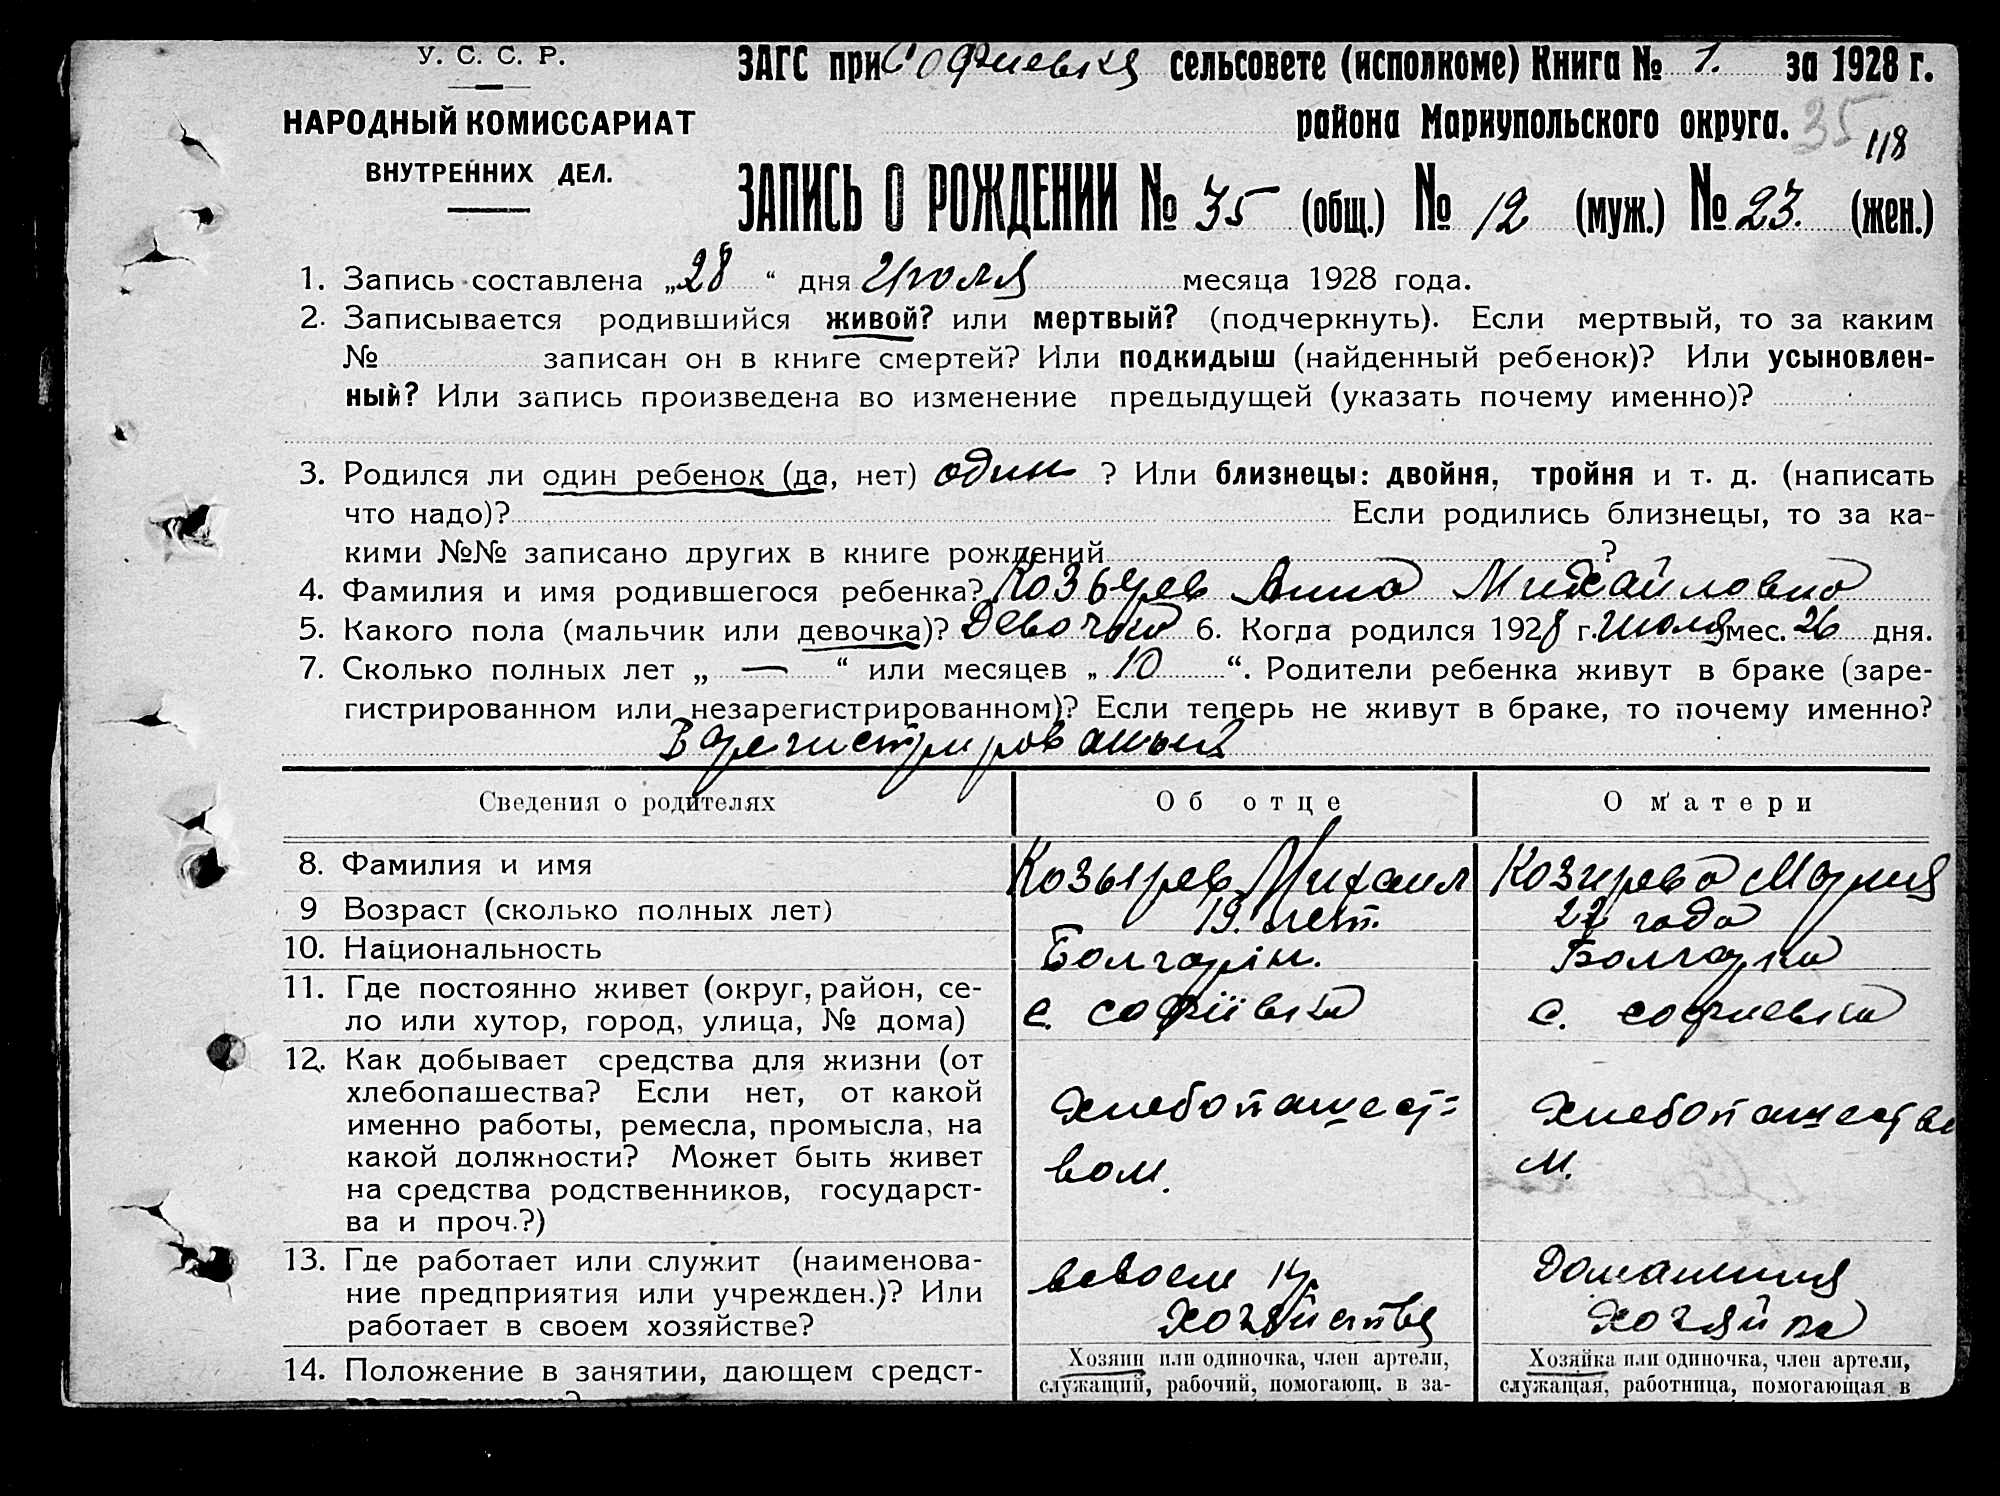 У. С. С. Р.
НАРОДНЫЙ КОМИССАРИАТ
ВНУТРЕННИХ ДЕЛ.
ЗАГС при Софиевка сельсовете (исполкоме) Книга № 1. за 1928 г.
района Мариупольского округа. 35 118
ЗАПИСЬ О РОЖДЕНИИ № 35 (общ.) № 12 (муж.) № 23. (жен.)
1. Запись составлена „28“ дня Июля месяца 1928 года.
2. Записывается родившийся живой? или мертвый? (подчеркнуть). Если мертвый, то за каким
№ записан он в книге смертей? Или подкидыш (найденный ребенок)? Или усыновлен-
ный? Или запись произведена во изменение предыдущей (указать почему именно)?
3. Родился ли один ребенок (да, нет) один ? Или близнецы: двойня, тройня и т. д. (написать
что надо)? Если родились близнецы, то за ка-
кими №№ записано других в книге рождений ?
4. Фамилия и имя родившегося ребенка? Козырев Анна Михайловна
5. Какого пола (мальчик или девочка)? Девочка 6. Когда родился 1928 г. июля мес. 26 дня.
7. Сколько полных лет „ — “ или месяцев „ 10 “. Родители ребенка живут в браке (заре-
гистрированном или незарегистрированном)? Если теперь не живут в браке, то почему именно?
Сведения о родителях
Об отце
О матери
8. Фамилия и имя
Козырев Михаил
Козирева Мария
9 Возраст (сколько полных лет)
19. лет.
22 года
10. Национальность
Болгарин.
Болгарка
11. Где постоянно живет (округ, район, се-
ло или хутор, город, улица, № дома)
с. Софіївка
с. софиевка
12. Как добывает средства для жизни (от
хлебопашества? Если нет, от какой
именно работы, ремесла, промысла, на
какой должности? Может быть живет
на средства родственников, государст-
ва и проч.?)
хлебопашест=
вом.
хлебопашество
м.
13. Где работает или служит (наименова-
ние предприятия или учрежден.)? Или
работает в своем хозяйстве?
всвоем
хозяйства
Домашния
хозяйка
14. Положение в занятии, дающем средст-
Хозяин или одиночка, член артели,
служащий, рабочий, помогающ. в за-
Хозяйка или одиночка, член артели,
служащая, работница, помогающая в